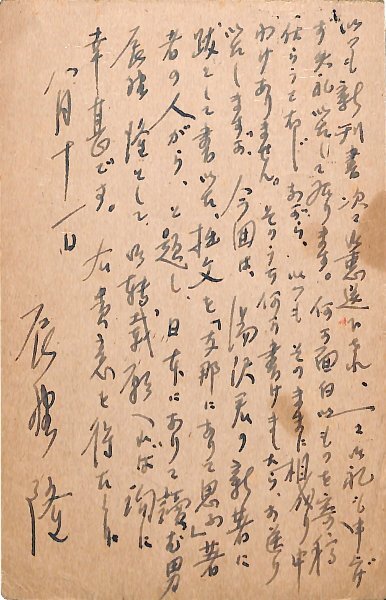 いつも新刊書次々御恵送下され、一々御礼も申さ
ず失礼致して居ります。何か面白いものを寄稿
仕らうと存じながら、いつもそのまゝに相成り申
わけありません。そのうち何か書けましたら、お送り
致しますが、今回は、湯沢君の新著に
跋として書いた拙文を「支那にあって思ふ」著
者の人がら、と題し、日本にありて読む男
辰野隆として、御転載願へれば洵に
幸甚です。右貴意を得たく
八月十一日
辰野隆